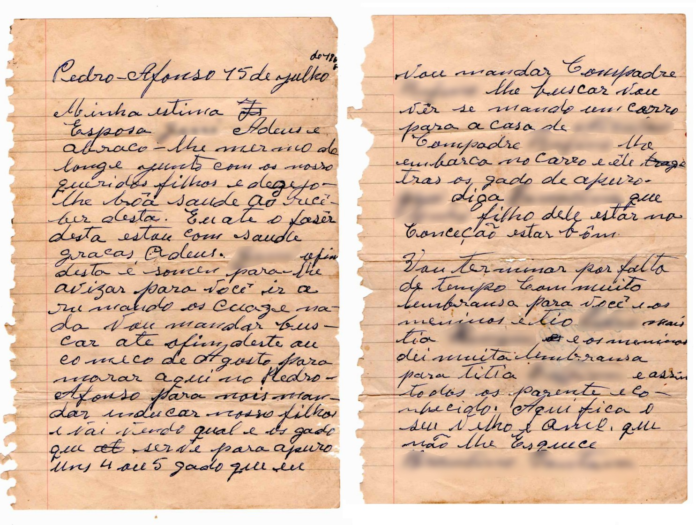 Pedro-Afonso 15 de julho
Minha estima
Esposa Adeus e
abraco-lhe mermo de
longe junto com os nosso
queridos filhos e desejo-
lhe bôa saude ao rece-
ber desta. Eu ate o faser
desta estou com saude
graças, a Deus. ofim
desta é somen para lhe
avizar para você ir a
rumando os cuaze na-
da vou mandar bus-
car até ofim deste ou
comeco de Agosto para
morar aqui no Pedro-
Afonso para nois man-
dar inducar nosso filhos
e vai vendo qual e os gado
que serve para apuro
uns 4 ou 5 gado que eu
vou mandar Compadre
lhe buscar vou
vêr se mando um carro
para a casa de
Compadre lhe
embarca no carro e êle
tras os gado de apuro.
diga que
filho dele estár na
Conceção estar bôm
Vou terminar por falta
de tempo com muito
lembransa para você e os
meninos e tio mais
tia e os meninos
dei muita lembransa
para titia e assin
todos os parente e co-
nhecido. Aqui fica o
seu velho que
não lhe Esquece